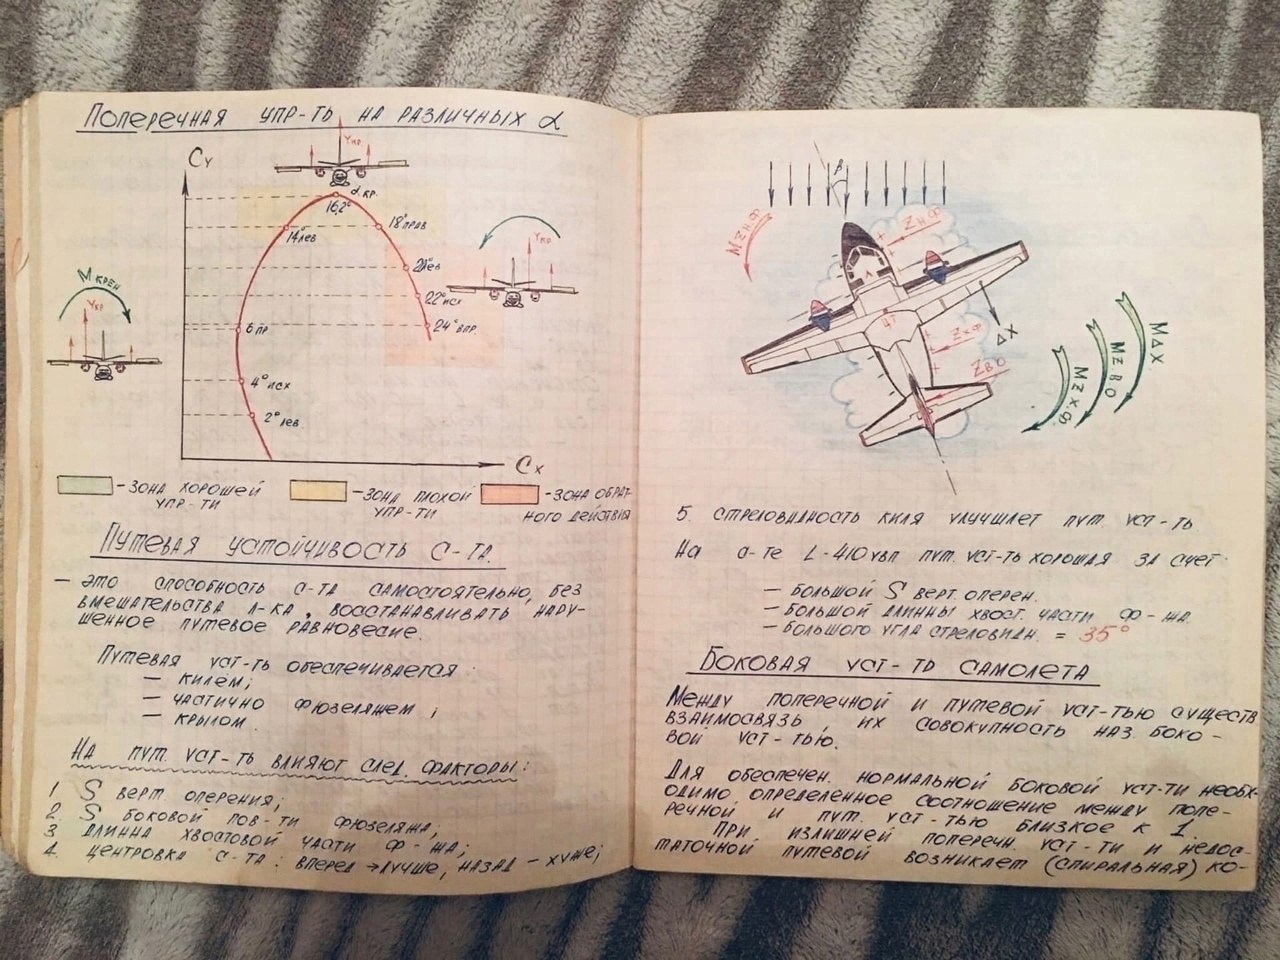 Поперечная упр-ть на различных α
Cу
Yкр
α кр.
16,2°
14°лев
18°прав
Yкр
21°лев
Мкрен
Yкр
22°исх
6 пр
24° впр
4° исх
2° лев
Cх
- зона хорошей
упр-ти
- зона плохой
упр-ти
- зона обрат-
ного действия
Путевая устойчивость с-та.
– это способность с-та самостоятельно, без
вмешательства л-ка, восстанавливать нару-
шенное путевое равновесие.
Путевая уст-ть обеспечивается:
– килем;
– частично фюзеляжем;
– крылом.
На пут. уст-ть влияют след. факторы:
1 S верт. оперения;
2. S боковой пов-ти фюзеляжа;
3 длинна хвостовой части ф-жа;
4. центровка с-та: вперед → лучше, назад – хуже;
β
Mzн.ф
Zн.ф
ΔX
Zх.ф
Zво
MΔX
Mzво
Mzх.ф.
5. стреловидность киля улучшлет пут. уст-ть
На с-те L-410увп пут. уст-ть хорошая за счет:
– большой S верт. оперен.
– большой длинны хвост. части ф-жа.
– большого угла стреловидн. = 35°
Боковая уст-ть самолета
Между поперечной и путевой уст-тью существ
взаимосвязь, их совокупность наз. боко-
вой уст-тью.
Для обеспечен. нормальной боковой уст-ти необх-
одимо определенное соотношение между попе-
речной и пут. уст-тью близкое к 1.
При излишней поперечн. уст-ти и недос-
таточной путевой возникает (спиральная) ко-